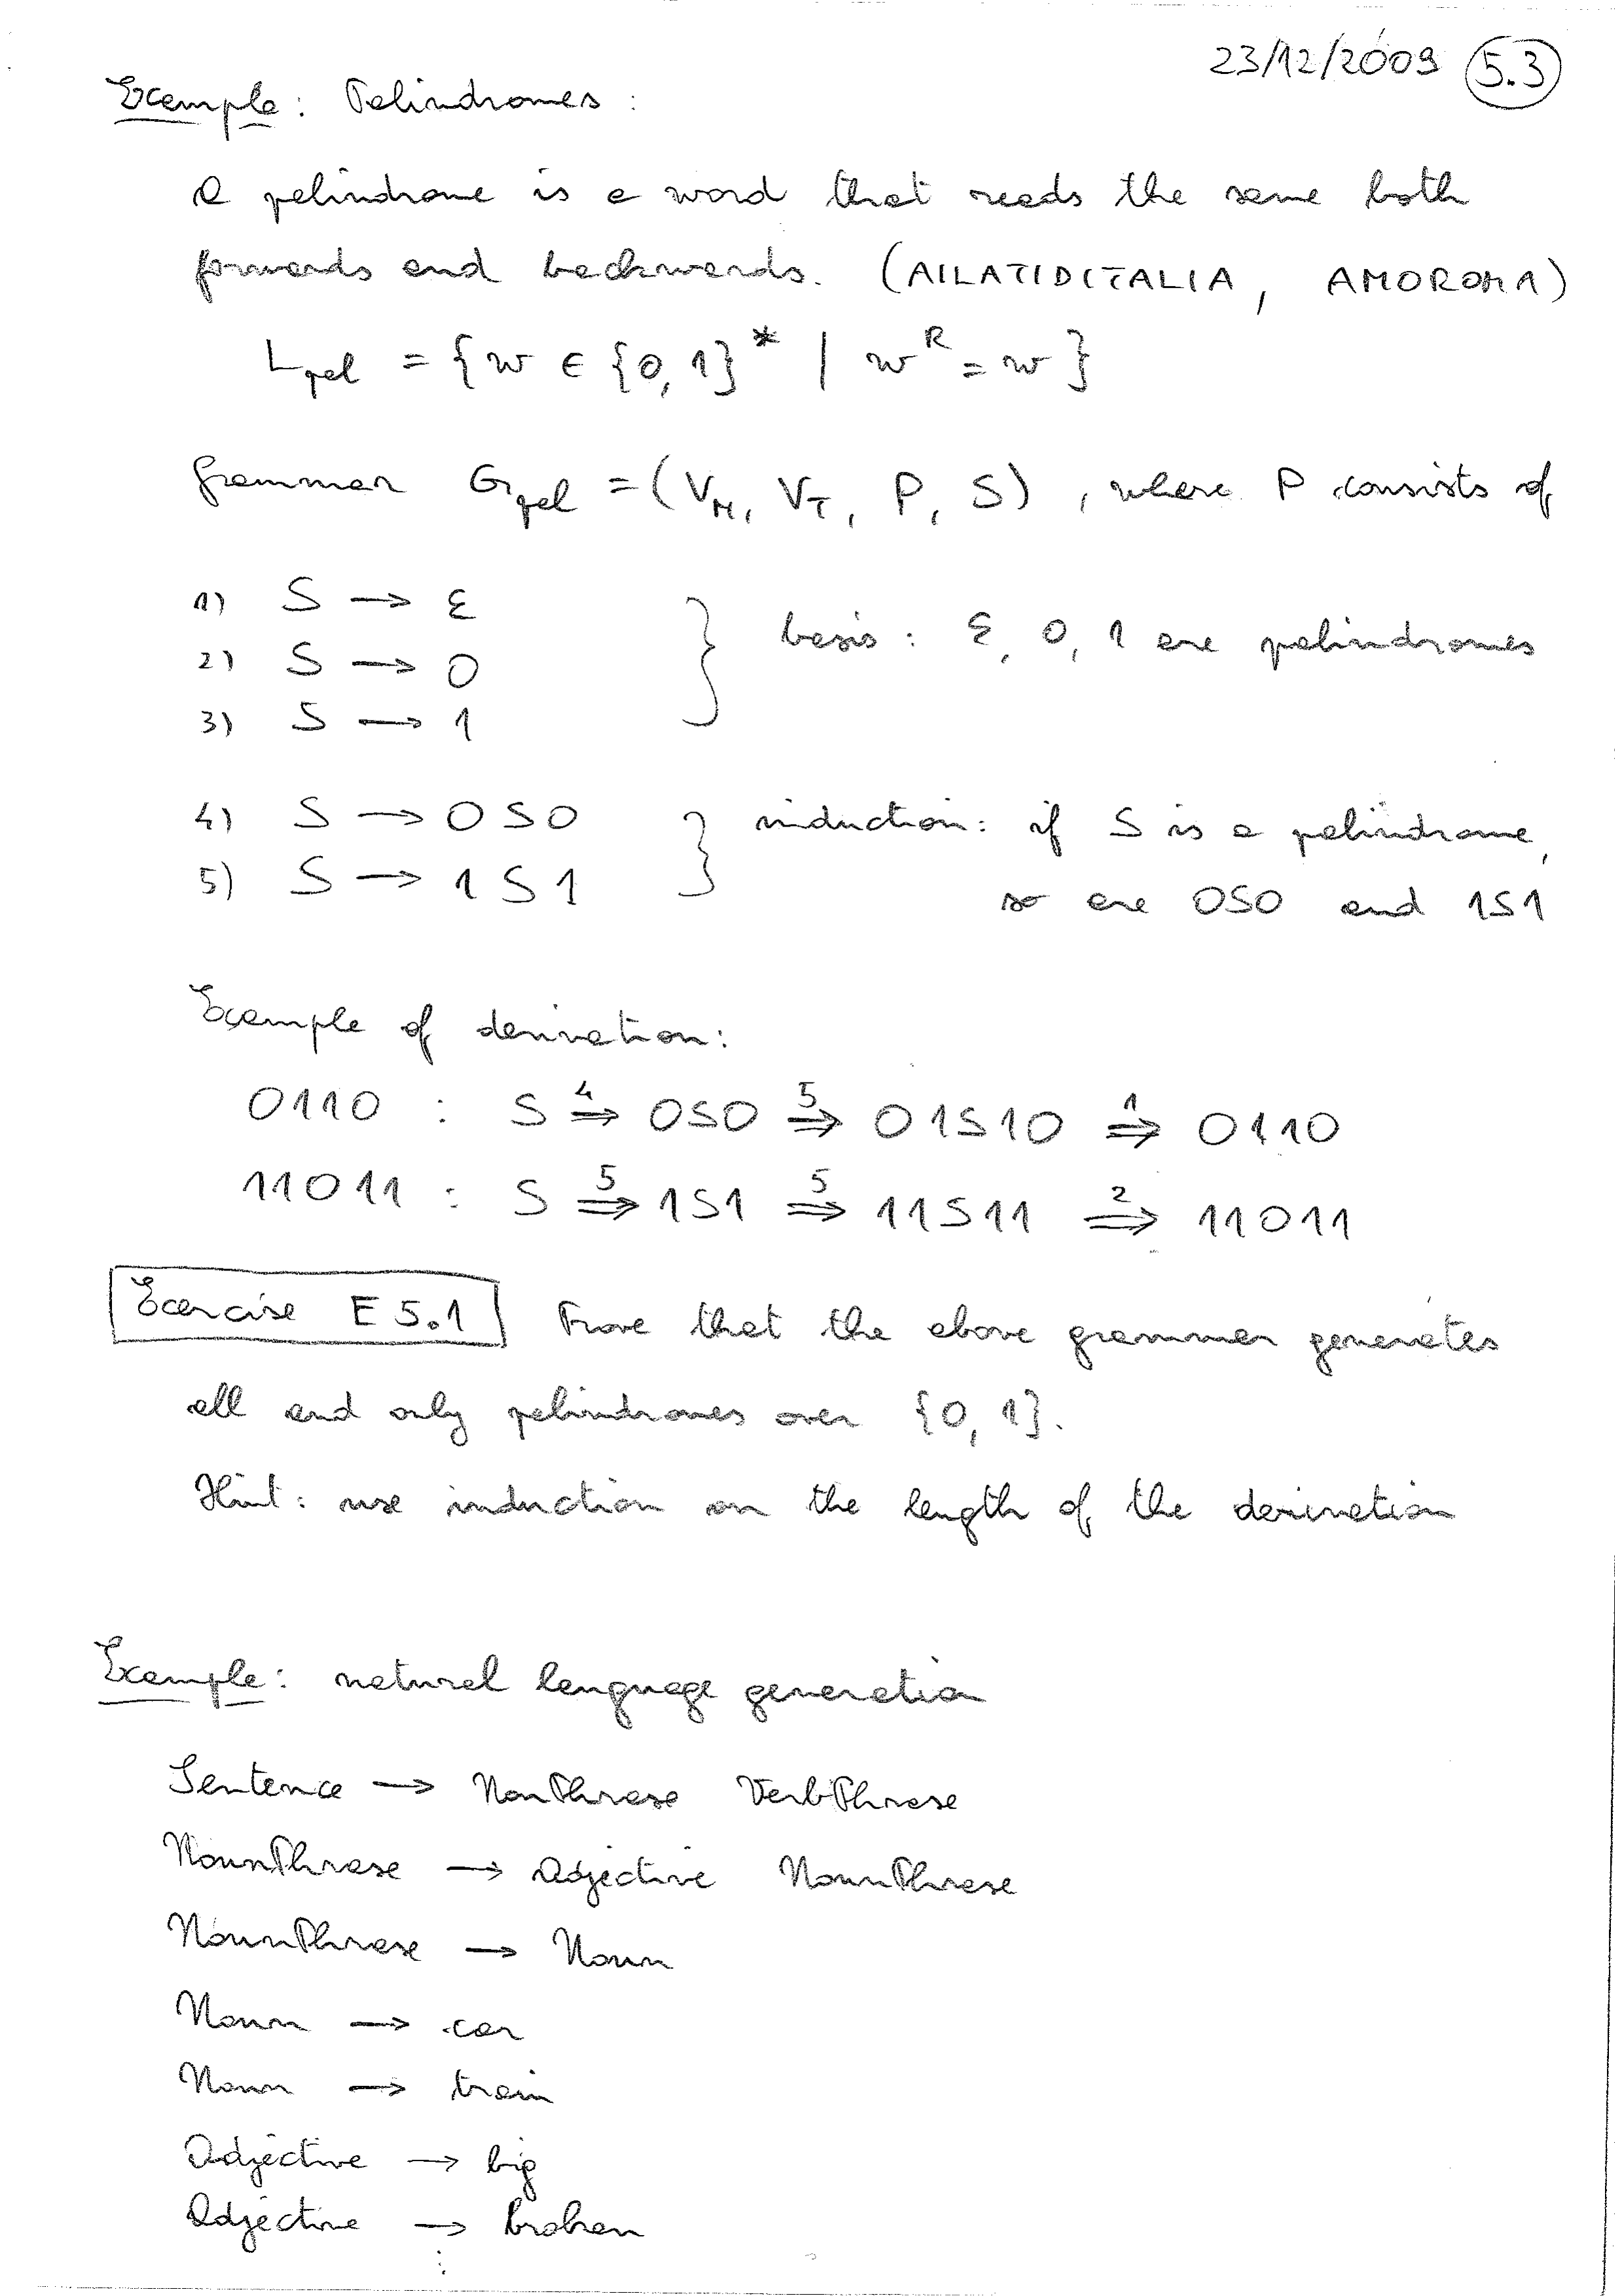 23/12/2009 5.3
Example: Palindromes:
A palindrome is a word that reads the same both
forwards and backwards. (AILATIDITALIA, AMOROMA)
L_pal = {w ∈ {0,1}* | w^R = w}
Grammar G_pal = (V_N, V_T, P, S), where P consists of
1) S → ε
2) S → 0
3) S → 1
} basis: ε, 0, 1 are palindromes
4) S → 0S0
5) S → 1S1
} induction: if S is a palindrome,
so are 0S0 and 1S1
Example of derivation:
0110 : S ⇒^4 0S0 ⇒^5 01S10 ⇒^1 0110
11011 : S ⇒^5 1S1 ⇒^5 11S11 ⇒^2 11011
Exercise E 5.1 Prove that the above grammar generates
all and only palindromes over {0,1}.
Hint: use induction on the length of the derivation
Example: natural language generation
Sentence → NounPhrase VerbPhrase
NounPhrase → Adjective NounPhrase
NounPhrase → Noun
Noun → car
Noun → train
Adjective → big
Adjective → broken
⋮